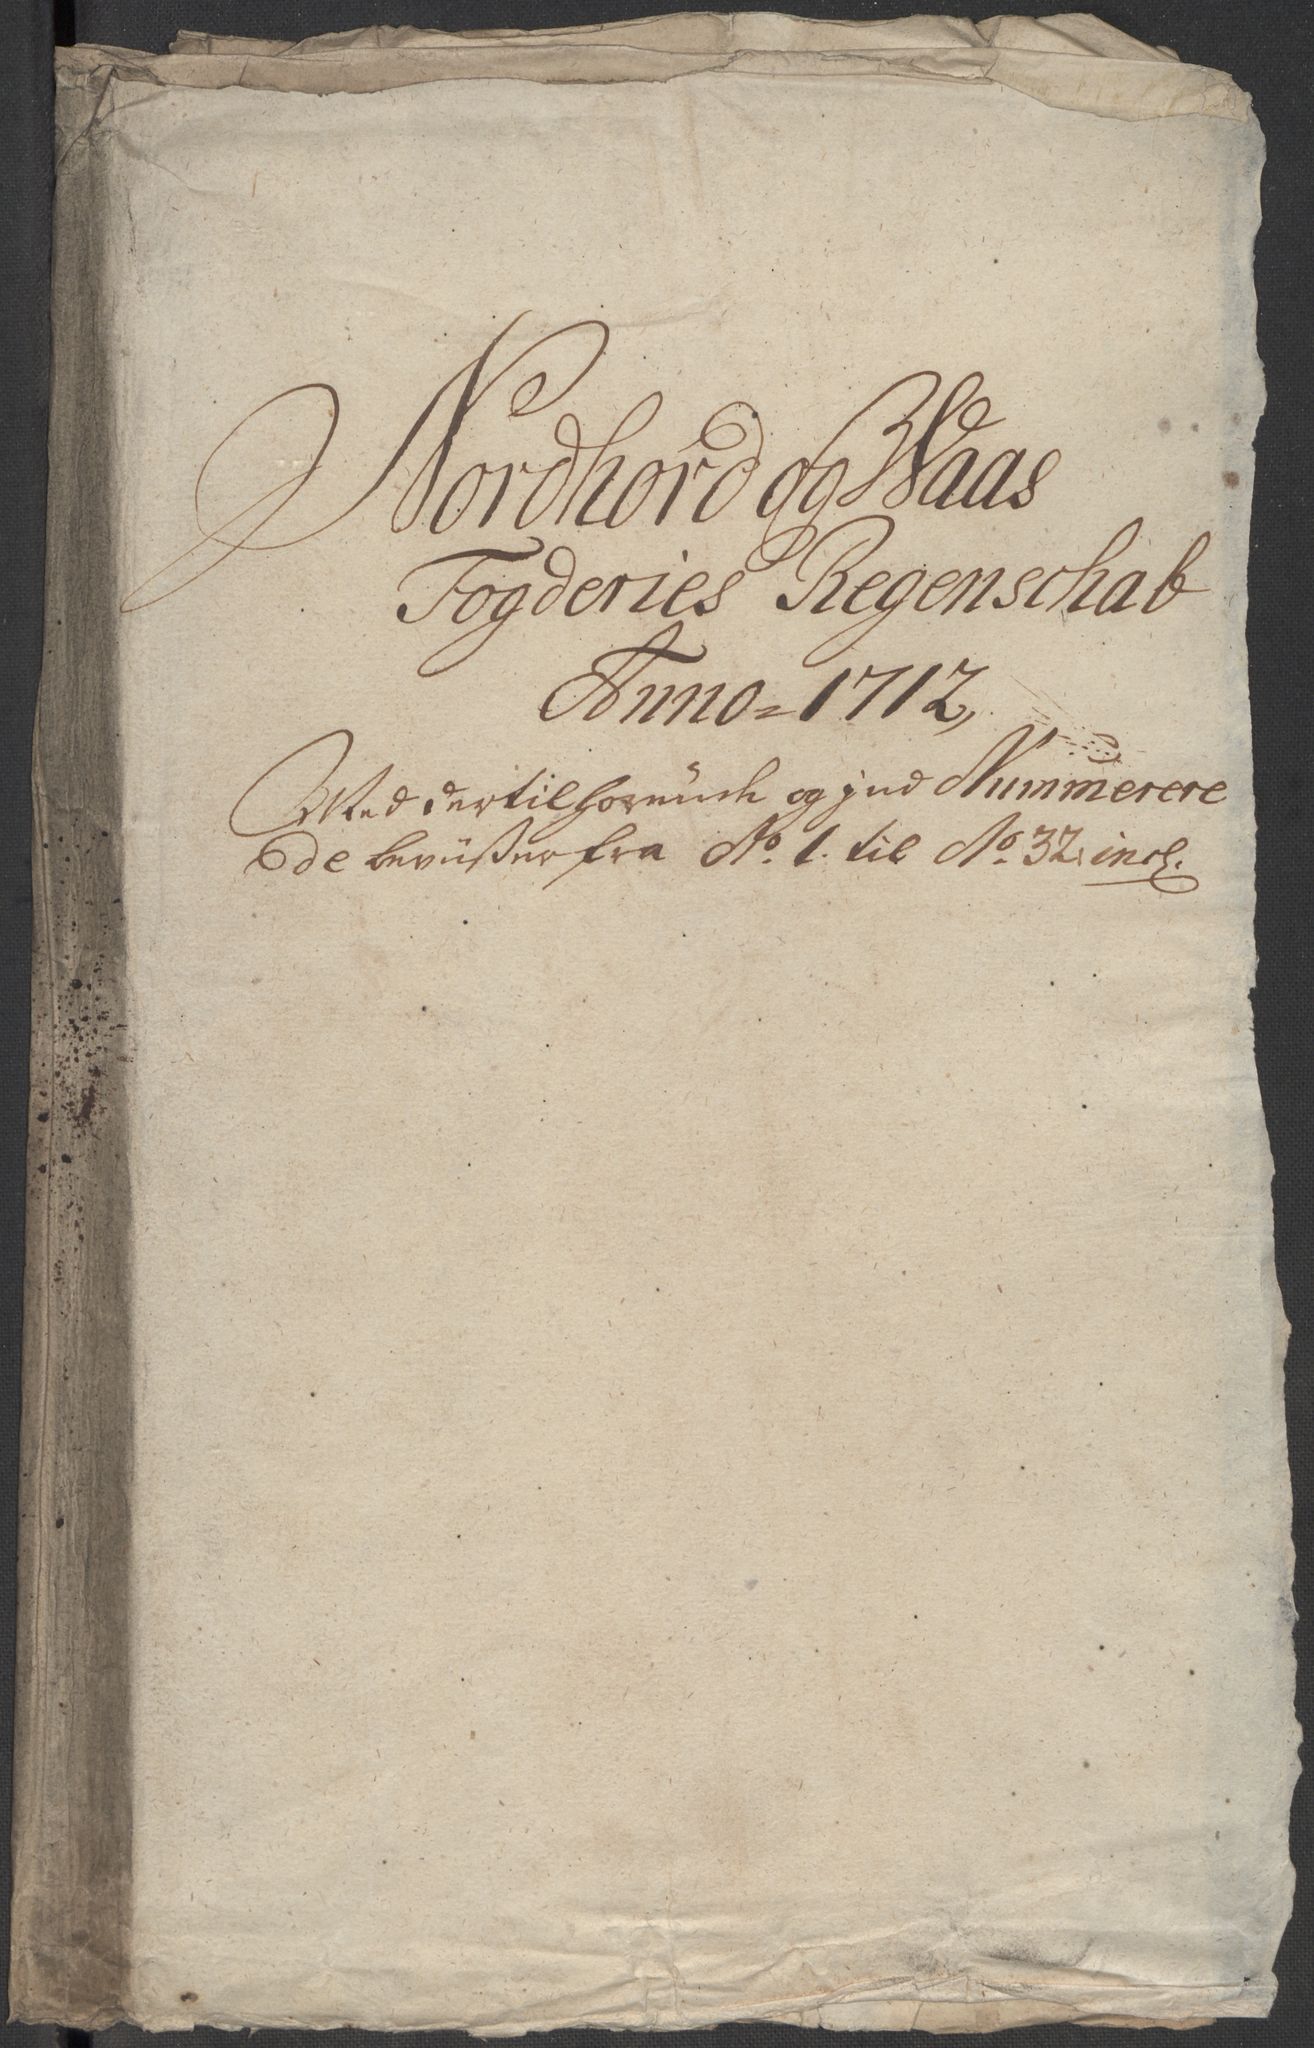 Nordhord og Waas
Fogderies Regenschab
Anno 1712,
Med dertilhörende og ind Nummerere
de beviißer fra No. 1. til No. 32 incl.